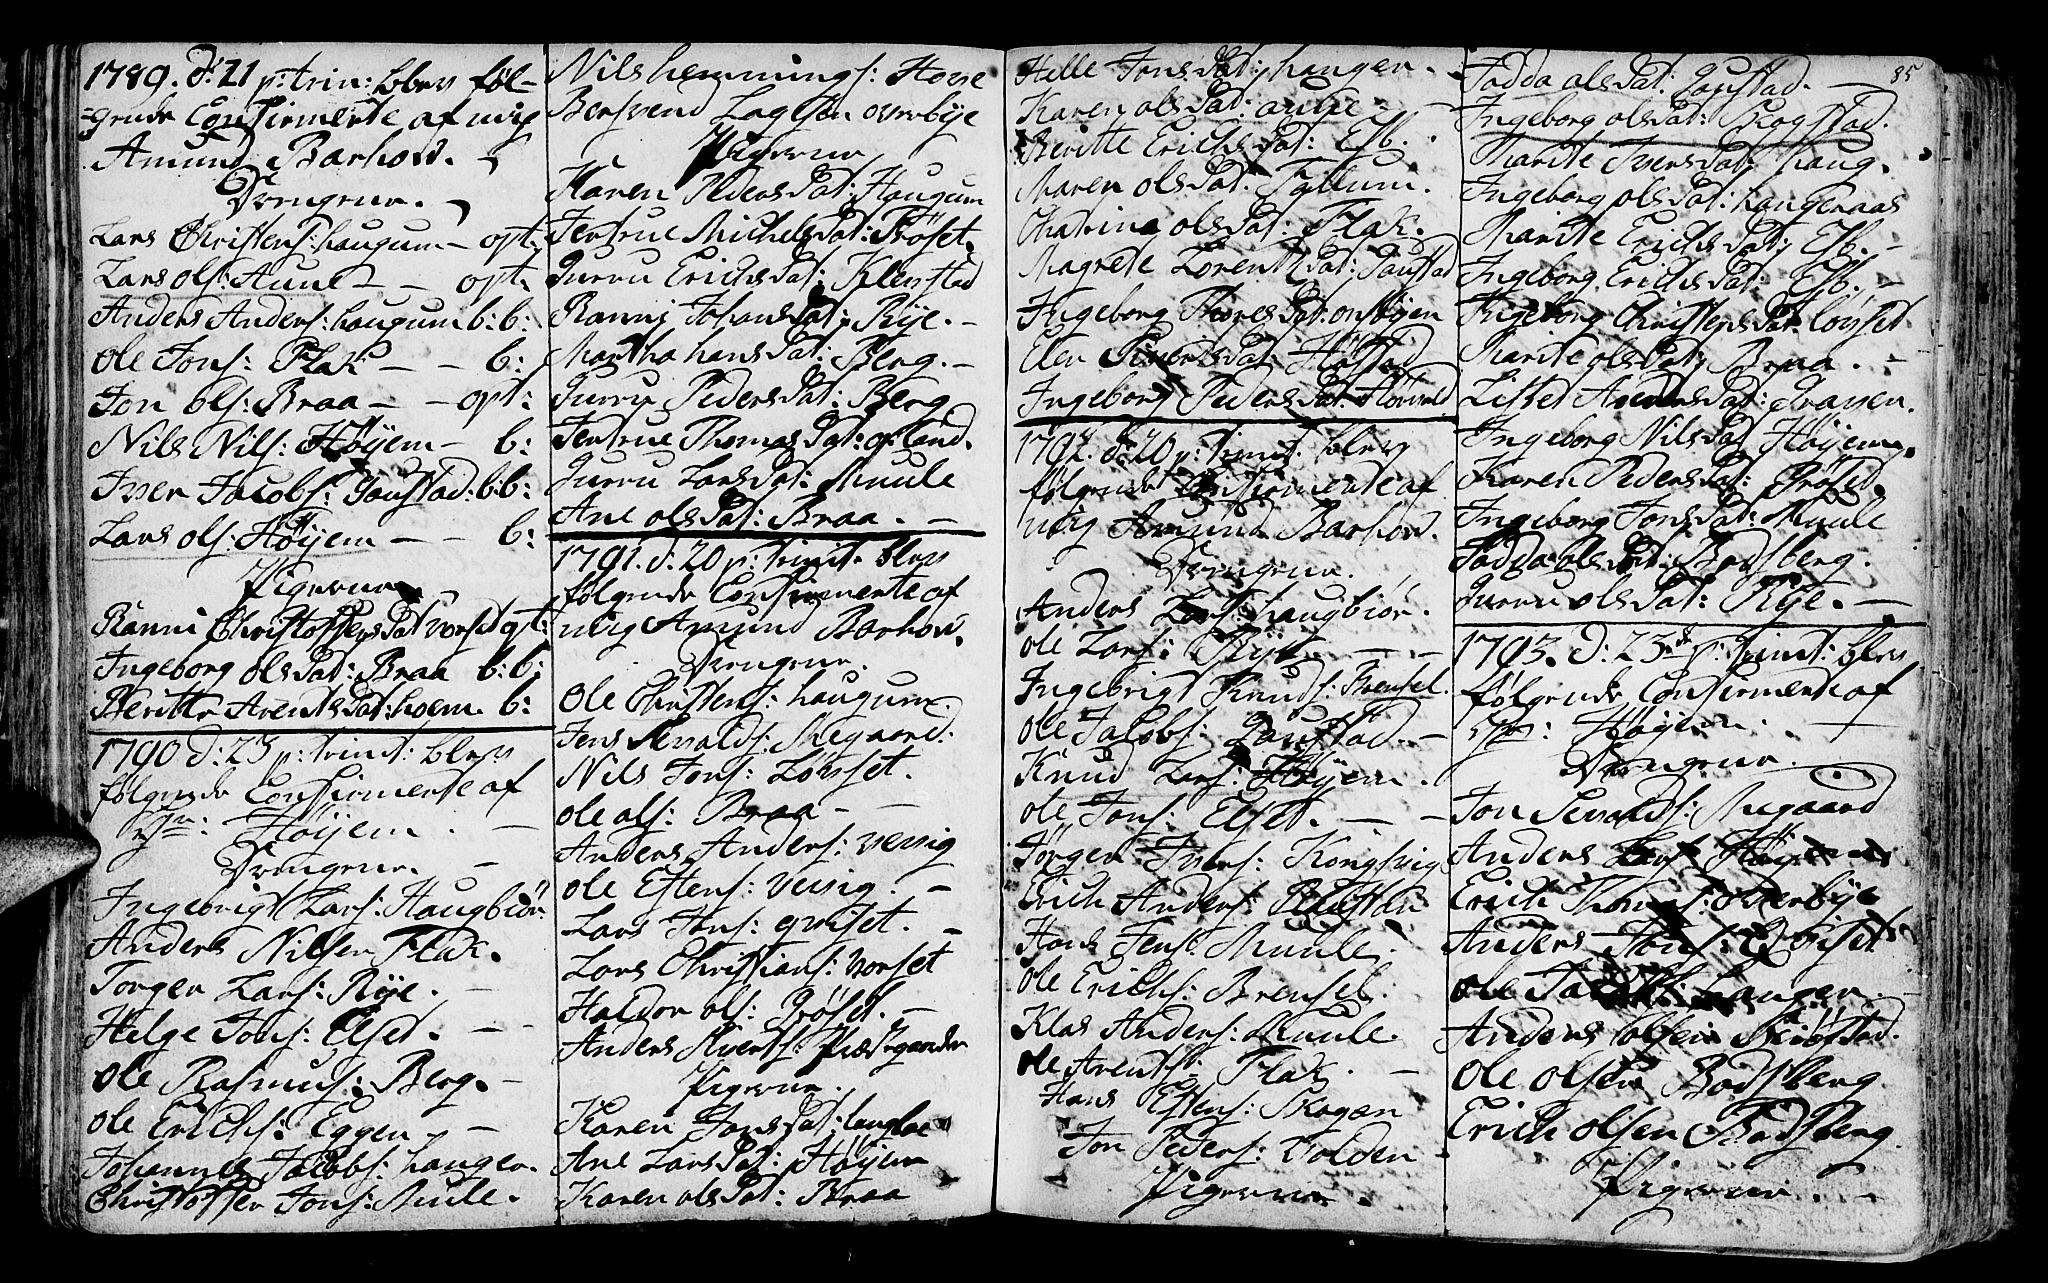 1789. d: 21 p: trin: blev føl-
-gende Confirmerte af mig
Amund Barhow.
Drengene.
Lars Christens: haugum – opt:
Lars ols: Aune – – opt.
Anders Anders: haugum b: b:
ole Jons: Flak – – b:
Jon ols: Braa – – opt:
Nils Nils: Høyem – b:
Iver Jacobs: Gaustad: b: b:
Lars ols: Høyem – – b:
Pigerne
Ranni Christophersdat vorset opt:
Ingeborg olsdat: Braa b: b:
Beritte Arentsdat: hoem. b:
1790 d: 23 p: trinit: blev
følgende Confirmerte af
Høyem. –
Drengene. –
Ingebrigt Lars: Haugbiør
Anders Nilsen Flak.
Torger Lars: Rye. –
Helge Jons: Elset. – –
ole Rasmus: Berg. –
ole Erichs: Eggen –
Johannes Jacobs: hanger.
Christoffer Jons: Mule.
Nils hemmings: Hove
Bersvend Lagesen overbye
Pigerne
Karen Pedersdat: Haugum
Jertrue Michelsdat: Røset.
Gurru Erichsdat: Klevstad
Ranni Johansdat: Rye. –
Martha hansdat: Berg. –
Gurru Pedersdat: Berg
Jertrue Thomasdat: ofland.
Gurru Larsdat: Muule
Ane olsdat: Braa. –
1791. d: 20 p: trinit. blev
følgende Confirmerte af
mig Amund Barhow.
Drengene.
ole Christens: haugum.
Jens Sevalds: Megaard:
Nils Jons: Løvset.
ole ols: Braa – –
Anders Anders: vevig
ole Estens: vevig. –
Lars Jons: qvuset. –
Lars Christians: vorset
Haldor ols: Røset. –
Anders Siverts: Præstgaarden
Pigerne.
Karen Jonsdat: langloe
Ane Larsdat: Høyem
Karen olsdat: Braa
Helle Jonsdat: hangen. –
Karen olsdat: aune – –
Beritte Erichsdat: Esb. .
Maren olsdat: Tyllum.
Chatrina olsdat: Flak.
Magrete Lorentsdat: Gaustad
Ingeborg Thoresdat: onsøyen
Elen Sivertsdat: Høstad
Ingeborg Pedersdat: Hovold
1792. d: 20 p: trinit. blev
følgende Confirmerte af
mig Amund Barhow.
Drengene.
Anders Lars: haugbiør.
ole Lars: Rye – –
Ingebrigt Knuds: Brensel.
ole Jacobs: Gaustad. –
Knud Lars: Høyem.
ole Jons: Elset. – –
Jørgen Ivers: Kongsvig
Erich Anders:
Hans Jens: Muule.
ole Erichs: Brensel.
Klas Anders: Muule.
ole Arents: Flak. –
Hans Estens: Skogan
Jon Peders: Volden
Pigerne.
85
Jodda olsdat: Gaustad. –
Ingeborg olsdat: Skogstad.
Marite Iversdat: haug.
Ingeborg olsdat: hangeraas
Marite Erichsdat: Esb. –
Ingeborg Erichsdat: Esb. –
Ingeborg Christensdat: løvset
Marite olsdat: Braa. –
Lisbet Andersdat: Graven.
Ingeborg Nilsdat Høyem.
Karen Pedersdat: Røset.
Ingeborg Jonsdat: Muule
Jodda olsdat: Bodsberg.
Gurru olsdat: Rye. –
1793. d: 23de p: trinit: blev
følgende Confirmerte af
Høyem. –
Drengene.
Jon Sevalds: Megaard
Anders Lars: Høyem
Erich Thomas: overbye
Anders Jons: Qviset
ole Jacobs: Langen.
Anders olsen
ole olsen Bodsberg
Erich olsen Bodsberg
Pigerne. –